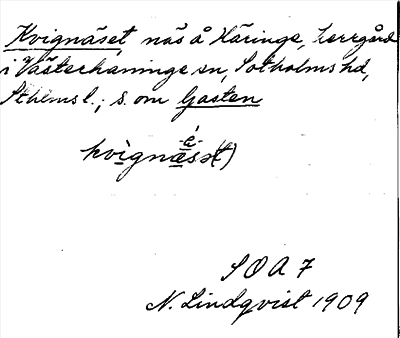 Kvignäset, näs å Häringe, herrgård
i Västerhaninge sn, Sotholms hd,
Sthlms l.; s. om Gasten
-é-
kvìgnæ̀sə(t)
S O A 7
N. Lindqvist 1909